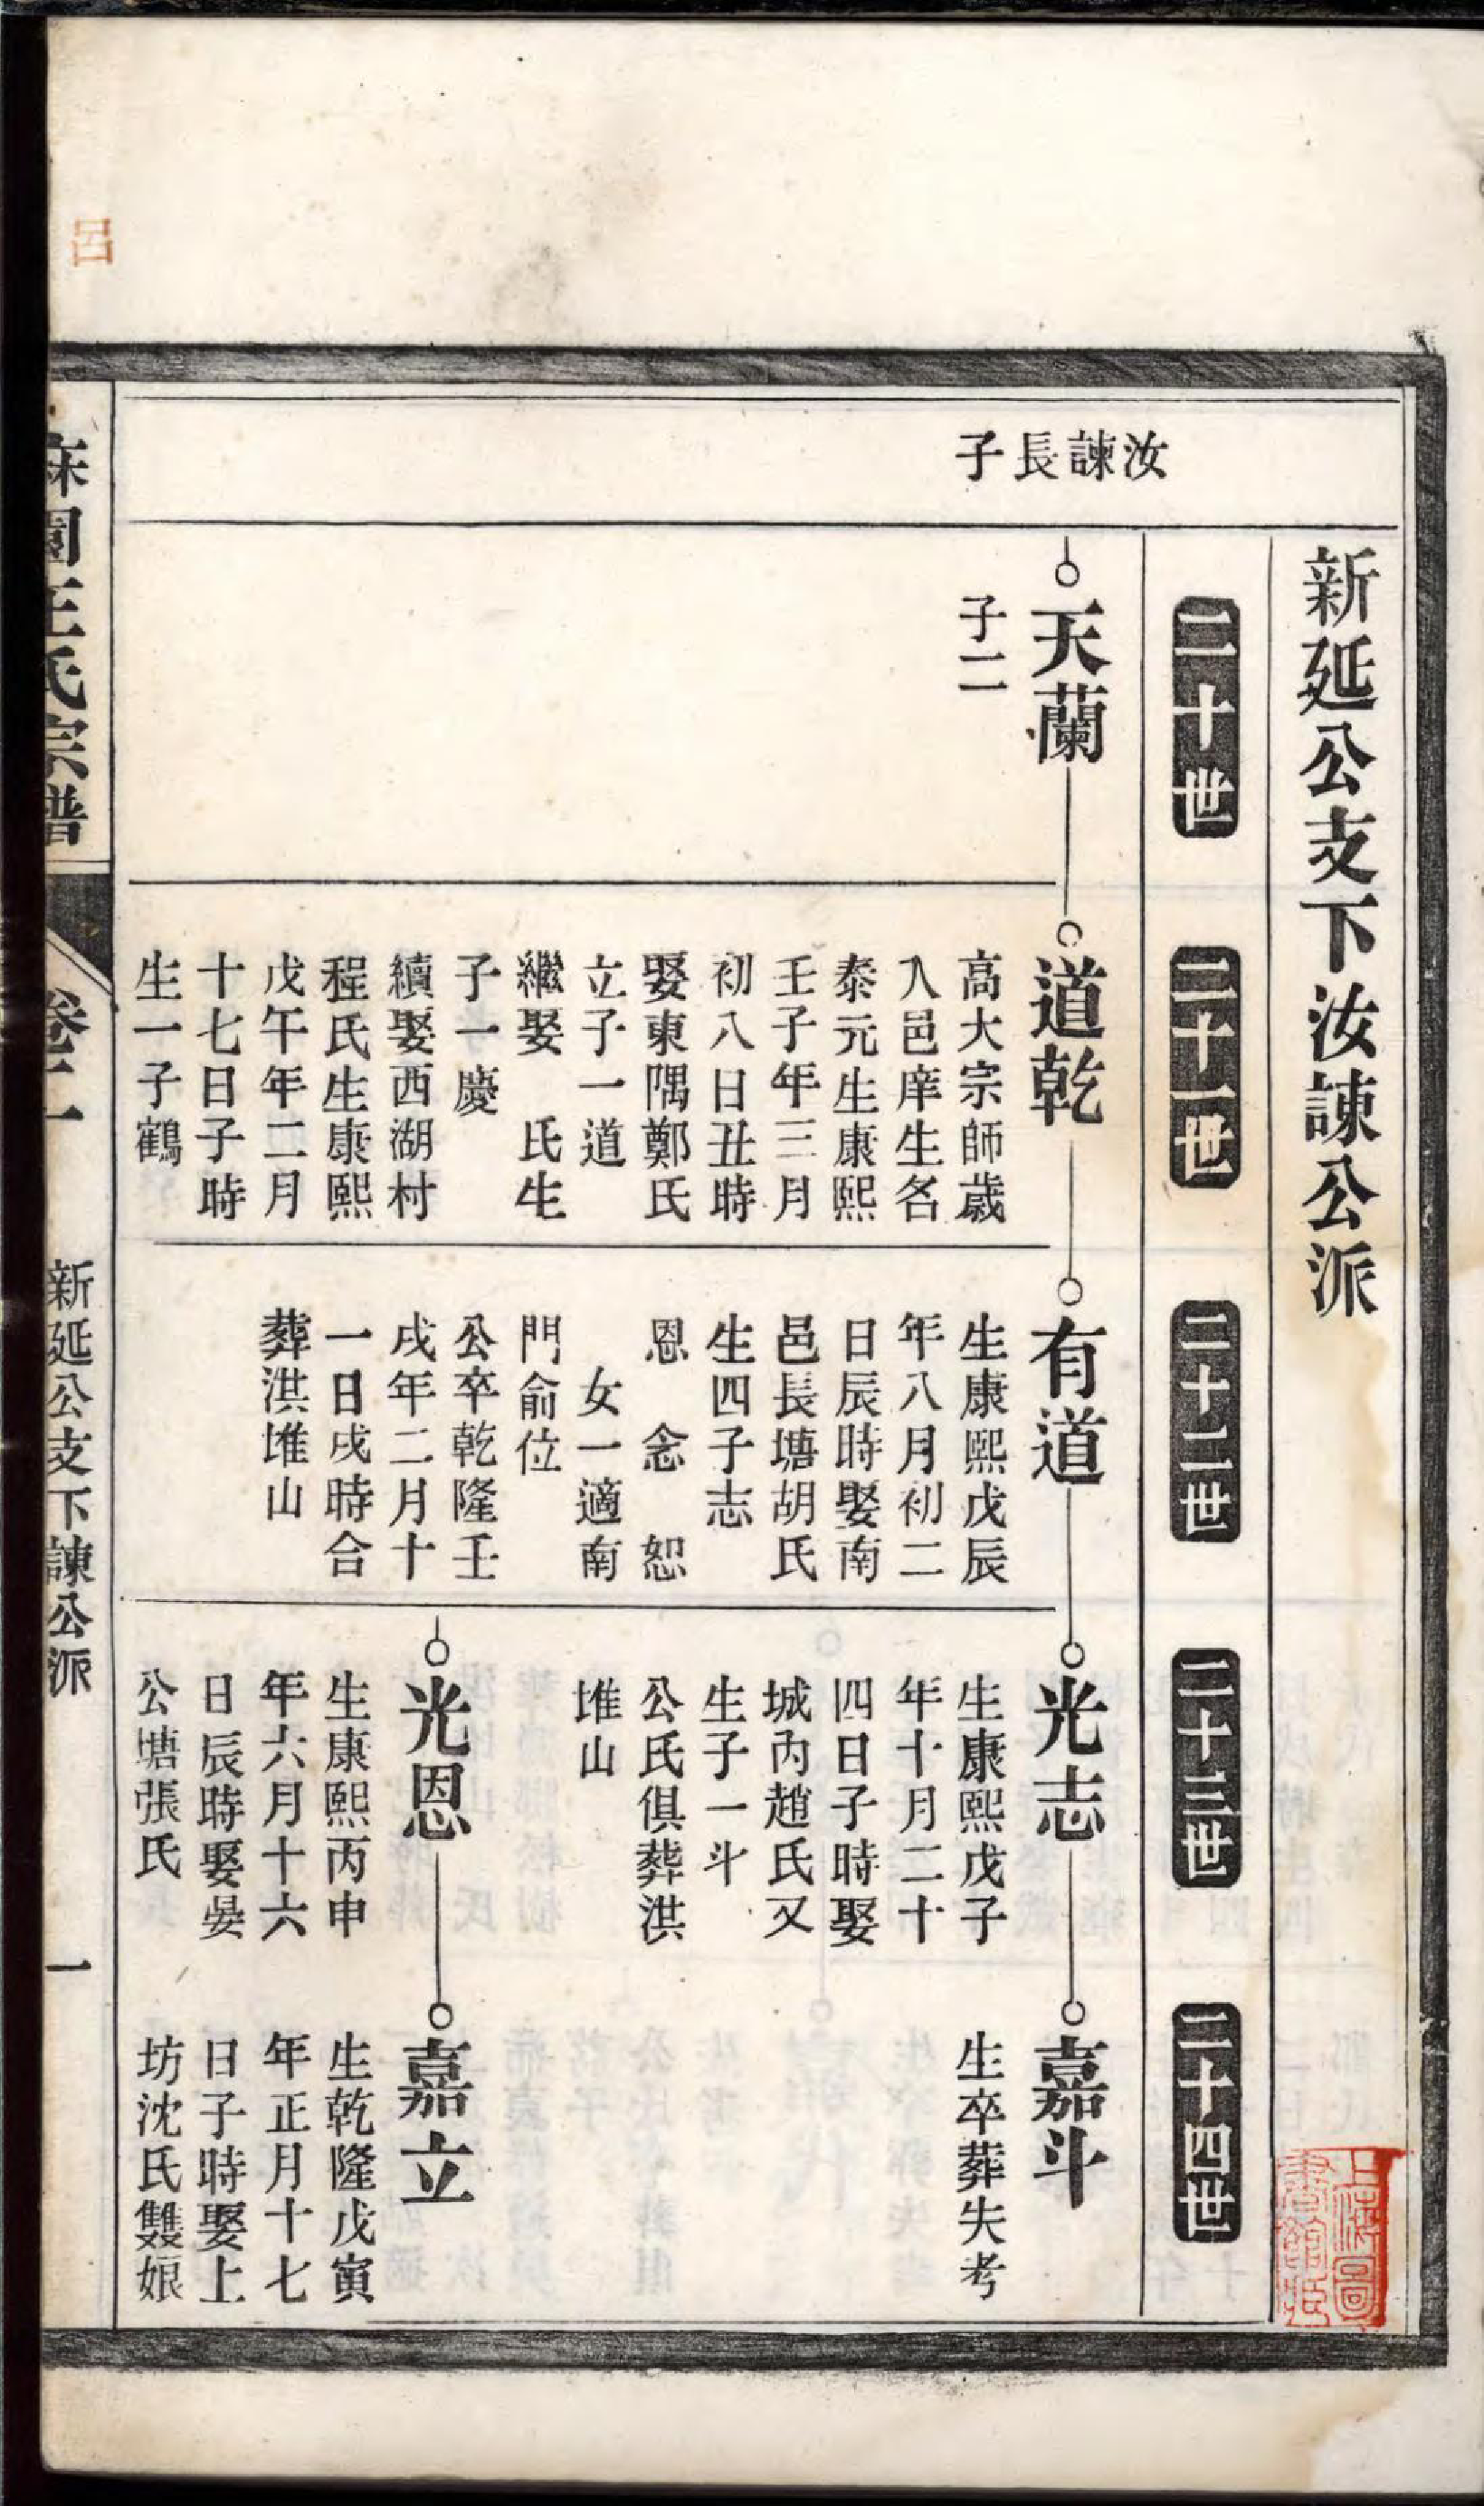 新延公支下汝諫公派
二十世
二十一世
二十二世
二十三世
二十四世
汝諫長子
天蘭
子二
道乾
高大宗師歲
入邑庠生名
泰元生康熙
壬子年三月
初八日丑時
娶東隅鄭氏
立子一道
繼娶　氏生
子一慶
續娶西湖村
程氏生康熙
戊午年二月
十七日子時
生一子鶴
有道
生康熙戊辰
年八月初二
日辰時娶南
邑長塘胡氏
生四子志
恩　念　恕
女一適南
門俞位
公卒乾隆壬
戌年二月十
一日戌時合
葬淇堆山
光志
生康熙戊子
年十月二十
四日子時娶
城內趙氏又
生子一斗
公氏俱葬淇
堆山
光恩
生康熙丙申
年六月十六
日辰時娶晏
公塘張氏
嘉斗
生卒葬失考
嘉立
生乾隆戊寅
年正月十七
日子時娶上
坊沈氏雙娘
麻園王氏宗譜
卷一
新延公支下諫公派
一
呂
上海圖書館藏